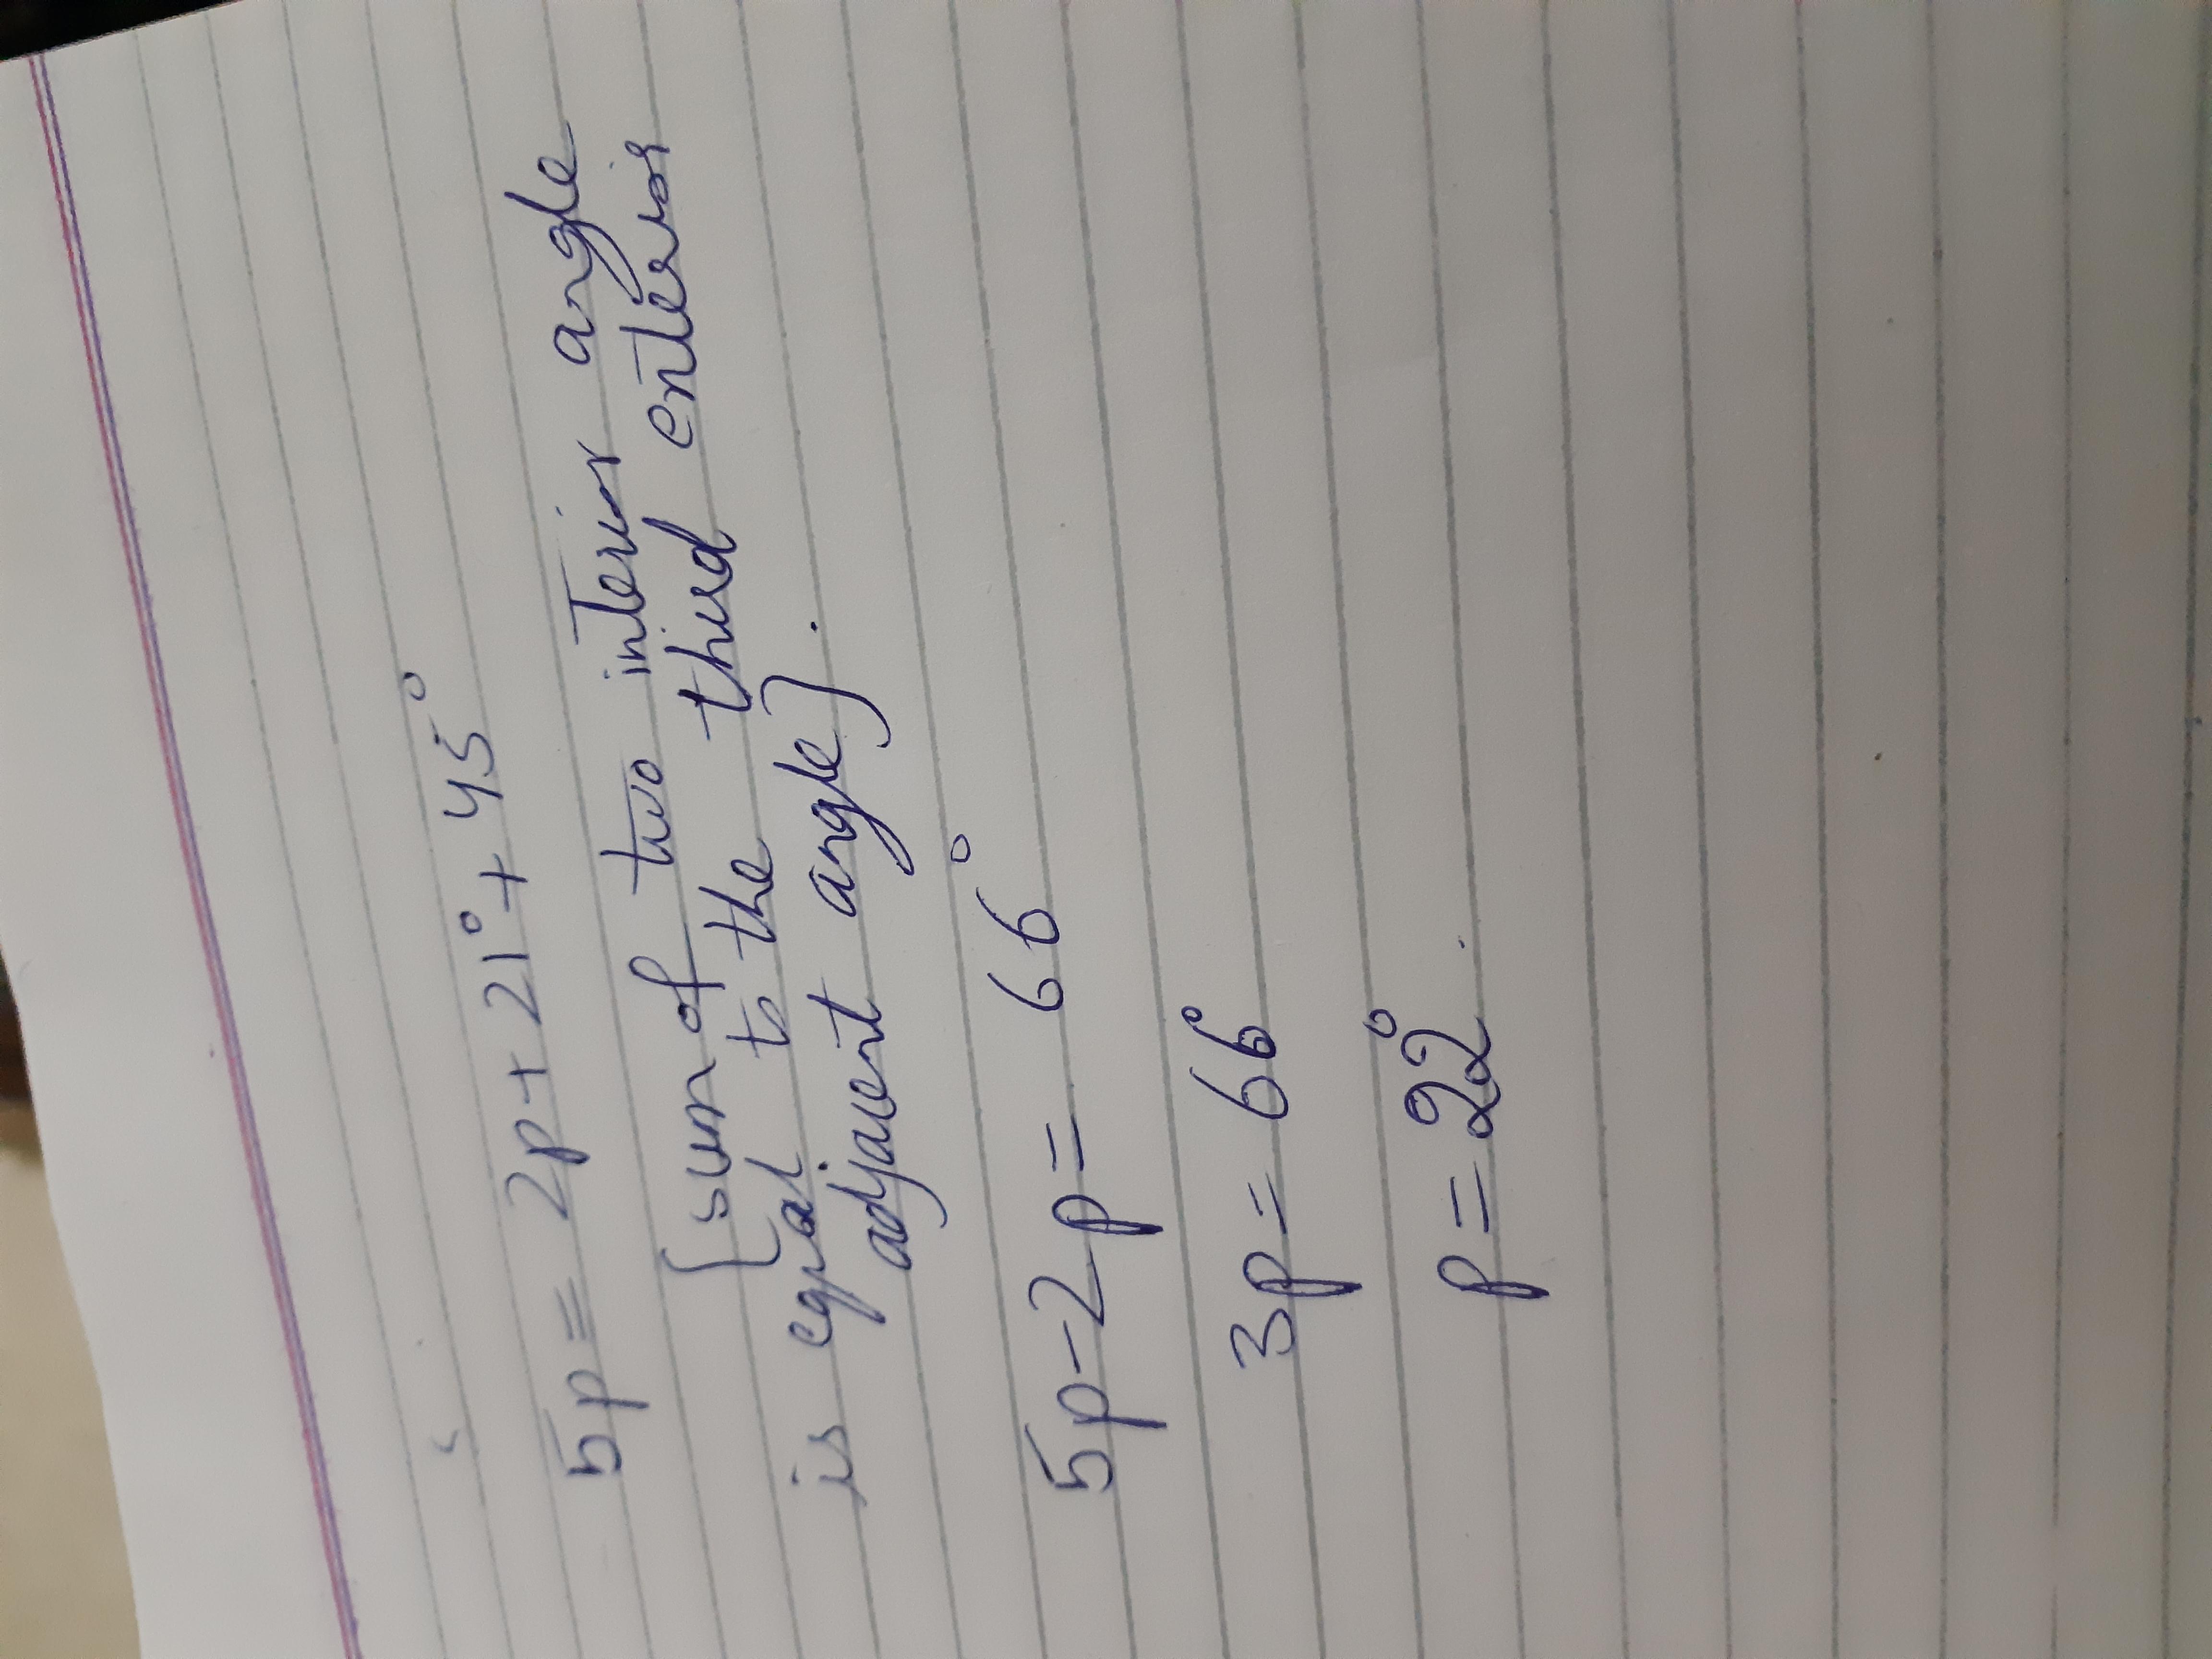 5p = 2p + 21° + 45°
[sum of two interior angle
is equal to the third enterior
adjacent angle].
5p - 2p = 66°
3p = 66°
p = 22°.